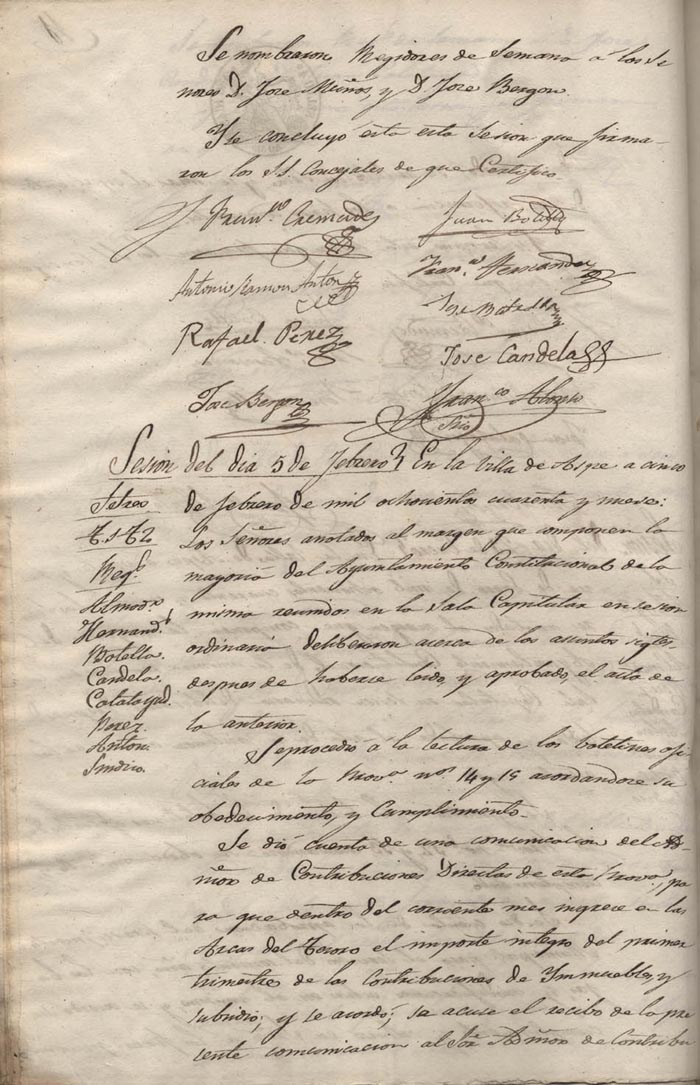 Se nombraron Regidores de Semana á los Se-
ñores D. Jose Muños, y D. Jose Bergon.
Y se concluyó esta esta Sesion que firma-
ron los S.S. Concejales de que Certifico.
Fran.co Cremades
Juan Botella
Antonio Ramon Anton
Fran.co Hernandez
Jose Botella
Rafael Perez
Jose Candela
Jose Bergon
Fran.co Alonso
Srio
Sesion del dia 5 de Febrero En la Villa de Aspe a cinco
de febrero de mil ochocientos cuarenta y nueve:
Los Señores anotados al margen que componen la
mayoria del Ayuntamiento Constitucional de la
misma reunidos en la Sala Capitular en sesion
ordinaria deliberaron acerca de los asuntos sigtes.
despues de haberse leido, y aprobado, el acta de
la anterior.
Sètres
Reg.s
Almod.r
Hernand.z
Botella.
Candela.
Calatayud.
Perez.
Anton.
Sindico.
Se procedió a la lectura de los boletines ofi-
ciales de la Prov.a n.os 14 y 15 acordandose su
obedecimiento, y Cumplimiento.
Se dió cuenta de una comunicacion del Ad-
mor de Contribuciones Directas de esta Prov.a, pa-
ra que dentro del corriente mes ingrece en las
Arcas del Tesoro el importe integro del primer
trimestre de las Contribuciones de Immuebles, y
subsidio; y se acordó; se acuse el recibo de la pre
sente comunicacion al Sor. Admor de Contribu